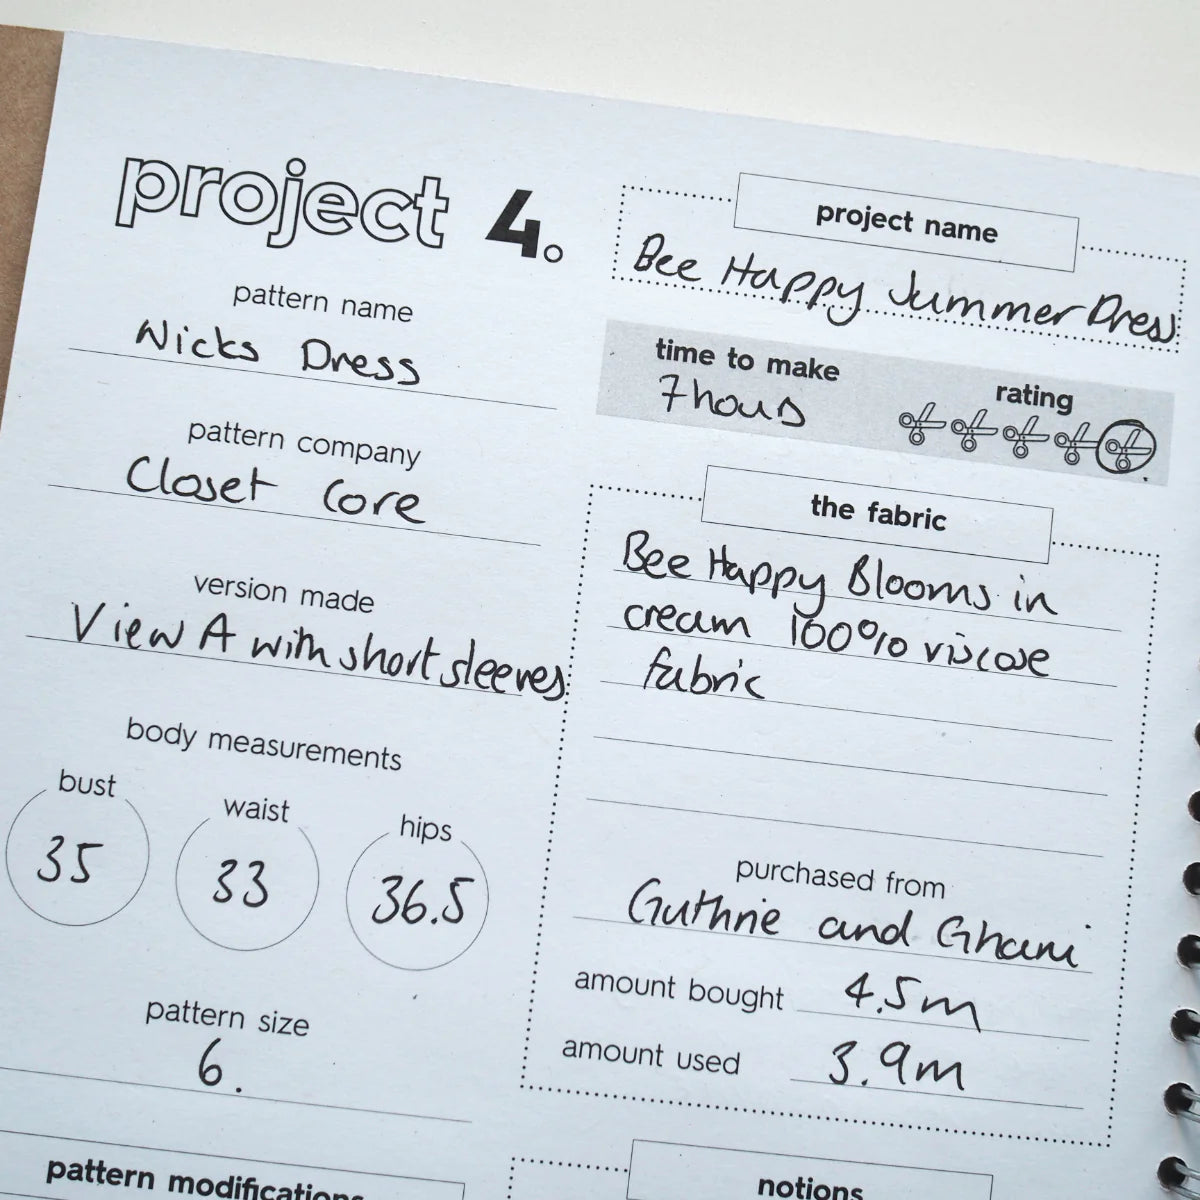 project 4.
pattern name
Nicks Dress
pattern company
Closet Core
version made
View A with short sleeves
body measurements
bust
35
waist
33
hips
36.5
pattern size
6.
pattern modifications
project name
Bee Happy Summer Dress
time to make
7 hours
rating
the fabric
Bee Happy Blooms in
cream 100% viscose
fabric
purchased from
Guthrie and Ghani
amount bought 4.5m
amount used 3.9m
notions